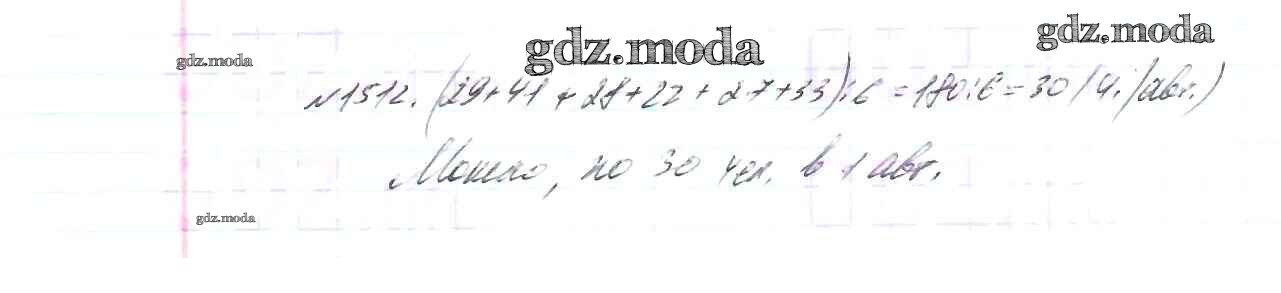 gdz.moda
gdz.moda
gdz.moda
№1512. (29+41+28+22+27+33):6=180:6=30 (ч./авт.)
Можно, по 30 чел. в 1 авт.
gdz.moda